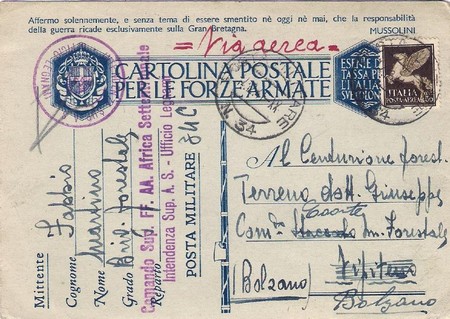 Affermo solennemente, e senza tema di essere smentito nè oggi nè mai, che la responsabilità
della guerra ricade esclusivamente sulla Gran Bretagna.
MUSSOLINI
Via aerea
CARTOLINA POSTALE
PER LE FORZE ARMATE
ESENTE DA
TASSA PER
ITALIA
POSTA AEREA
N. 34
Mittente
Cognome Sappio
Nome Martino
Grado Brig. forestale
Reparto
Comando Sup. FF. AA. Africa Settentrionale
Intendenza Sup. A. S. - Ufficio Legnami
POSTA MILITARE
Al Centurione forest.
Terreno dott. Giuseppe
Coorte
Com. m. Forestale
(Bolzano)
Vipiteno
Bolzano